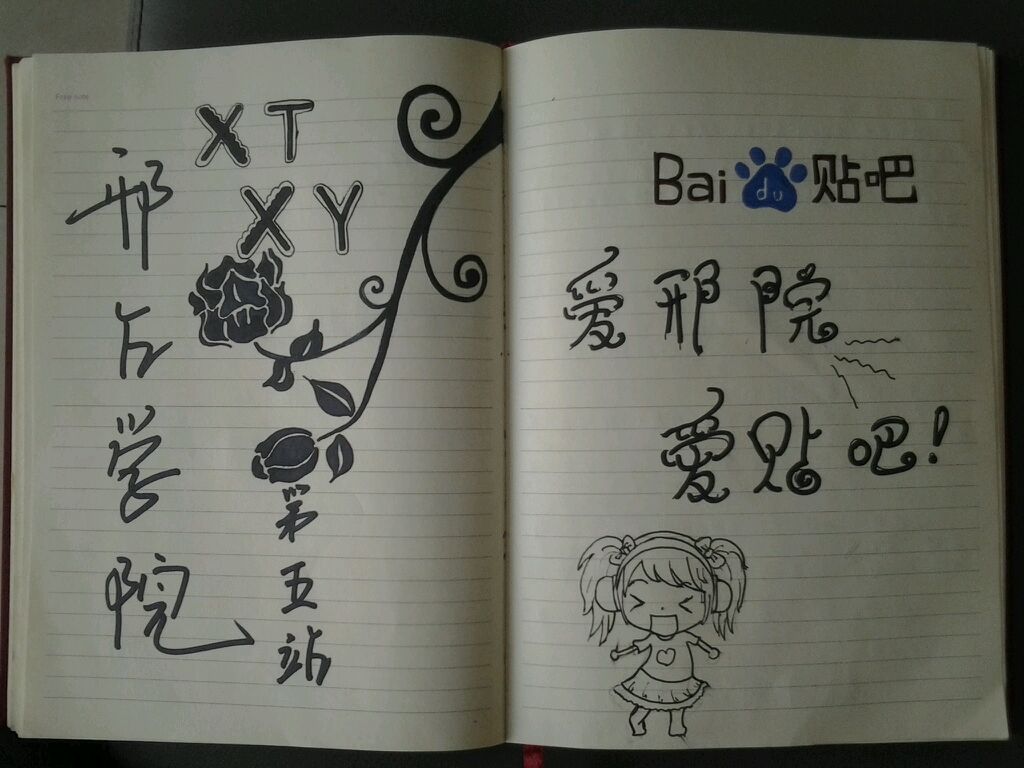 Free note
XT
XY
邢台学院
第五站
Bai du 贴吧
愛邢院
愛贴吧!